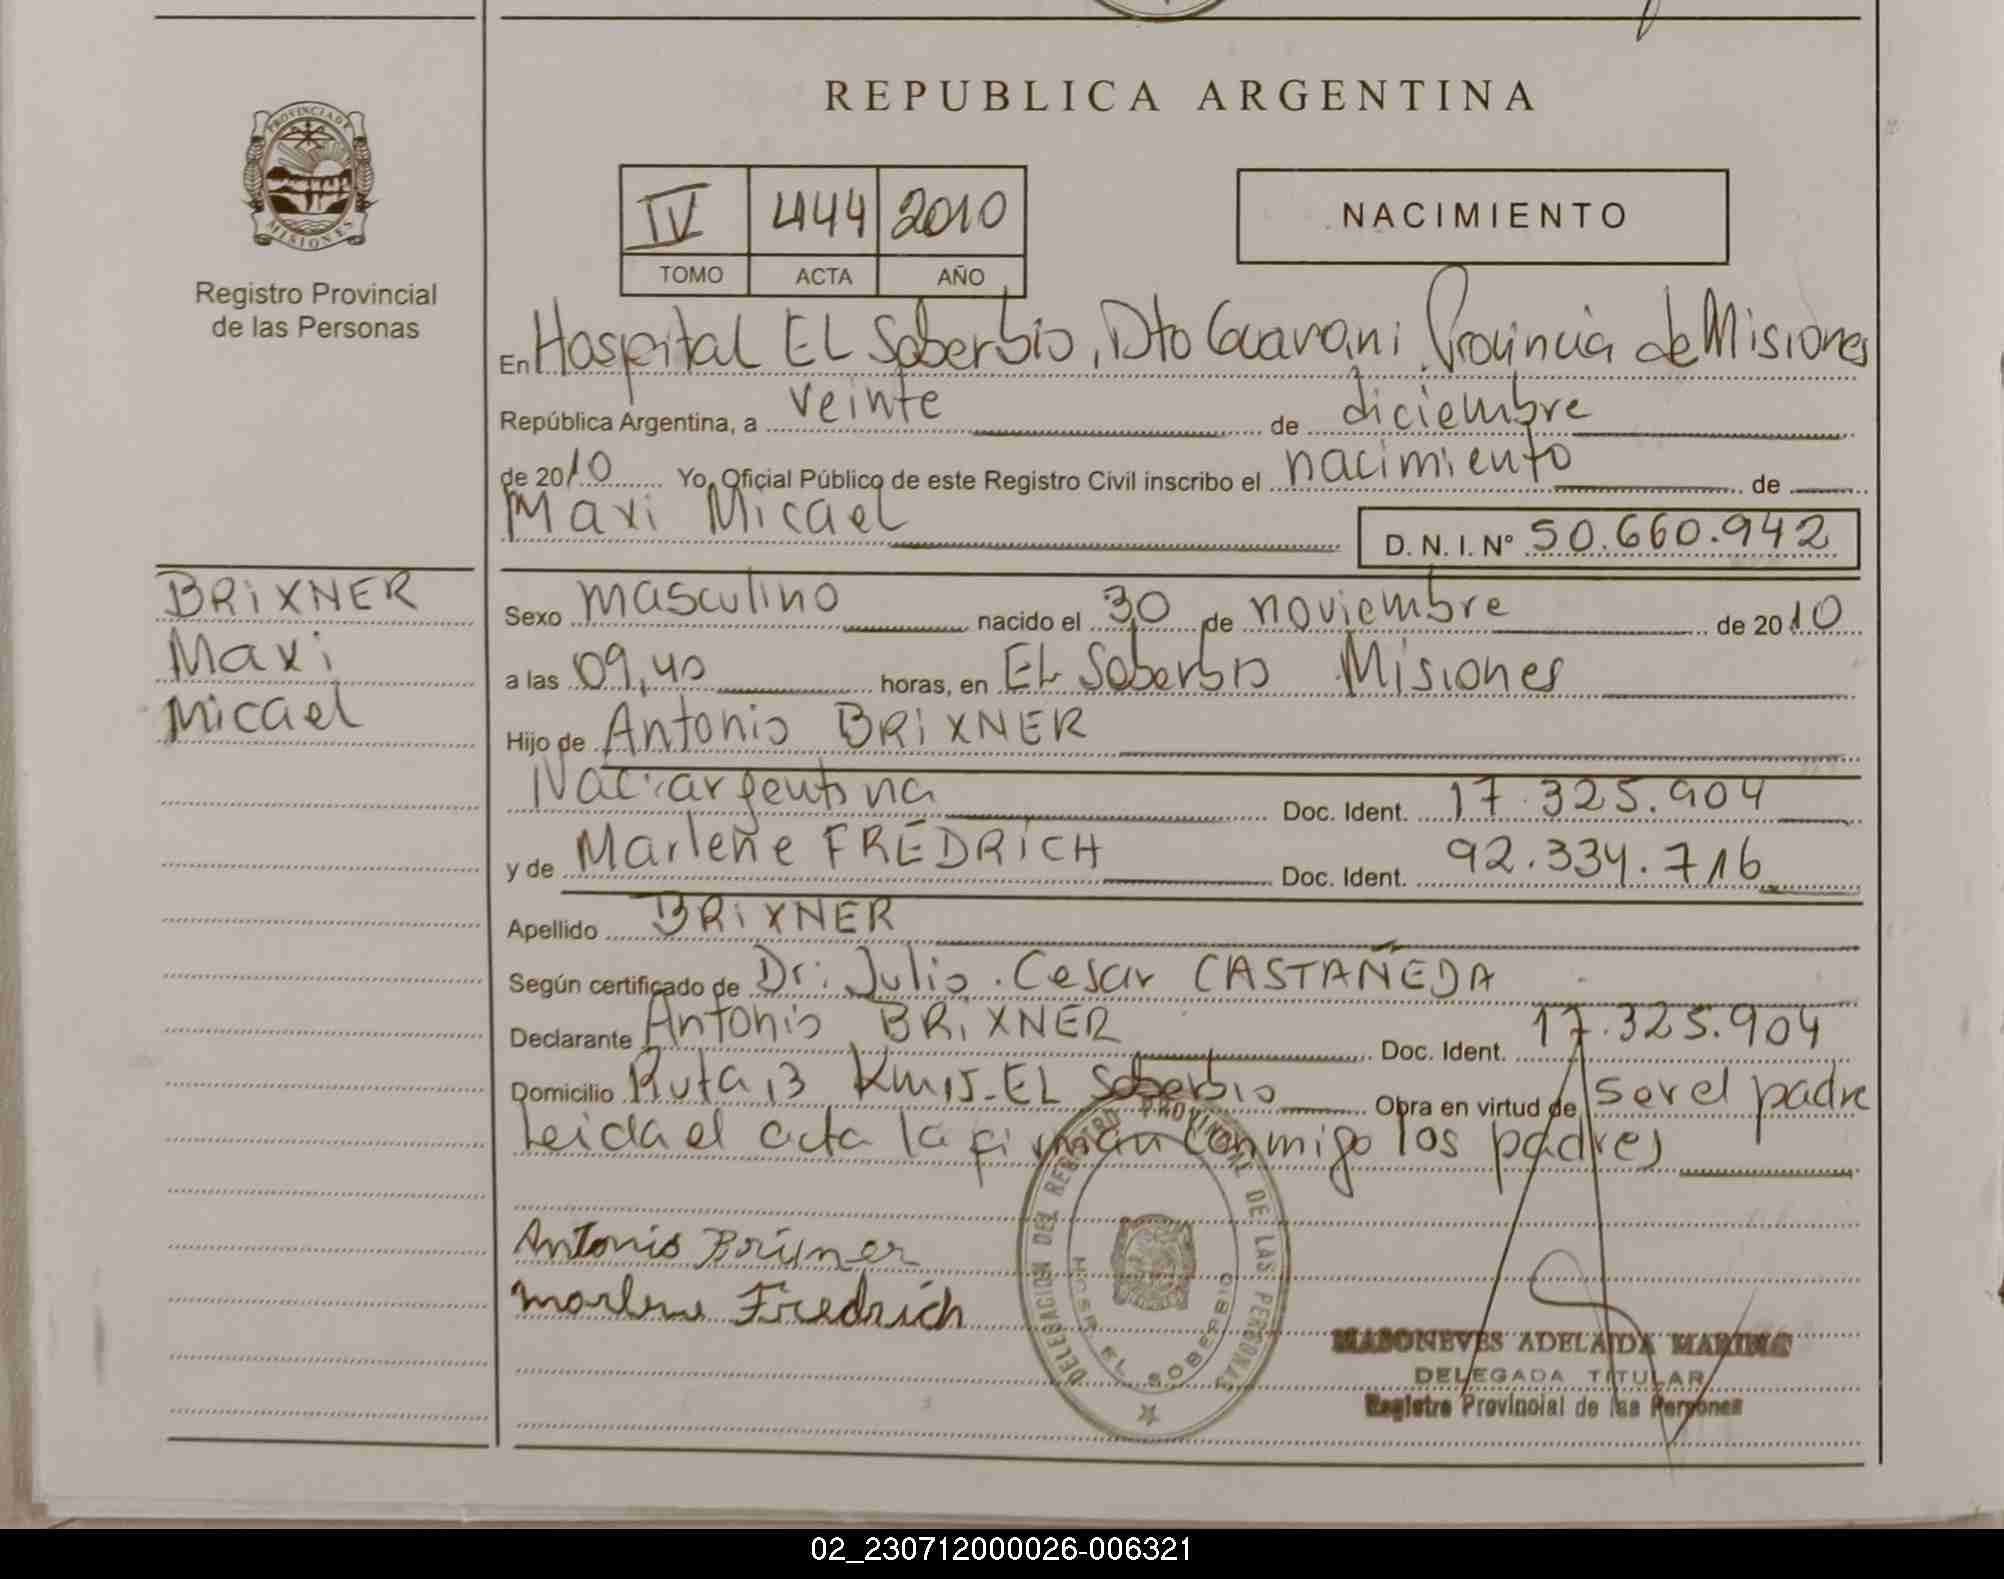 REPUBLICA ARGENTINA
PROVINCIA DE MISIONES
Registro Provincial
de las Personas
IV 444 2010
TOMO ACTA AÑO
NACIMIENTO
En Hospital EL Soberbio, Dto Guarani Provincia de Misiones
República Argentina, a veinte de diciembre
de 2010 Yo, Oficial Público de este Registro Civil inscribo el nacimiento de
Maxi Micael
D. N. I. Nº 50.660.942
BRiXNER
Maxi
Micael
Sexo masculino nacido el 30 de noviembre de 2010
a las 09,40 horas, en EL Soberbio Misiones
Hijo de Antonio BRiXNER
Nac: argentina Doc. Ident. 17.325.904
y de Marlene FREDRiCH Doc. Ident. 92.334.716
Apellido BRiXNER
Según certificado de Dr: Julio Cesar CASTAÑEDA
Declarante Antonio BRiXNER Doc. Ident. 17.325.904
Domicilio Ruta 13 Km 15-EL Soberbio Obra en virtud de ser el padre
Leida el acta la firman conmigo los padres
Antonio Brixner
Marlene Fredrich
DELEGACION DEL REGISTRO PROVINCIAL DE LAS PERSONAS
HOSP. EL SOBERBIO
ADELAIDA
DELEGADA TITULAR
Registro Provincial de las Personas
02_230712000026-006321